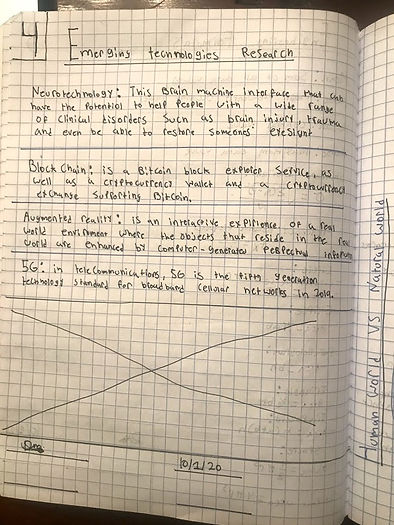 41 Emerging technologies Research
Neurotechnology: This Brain machine interface that can
have the potential to help People with a wide range
of clinical disorders such as brain injury, trauma
and even be able to restore someones eyesight
Block Chain: is a Bitcoin block explorer service, as
well as a cryptocurrency wallet and a cryptocurrency
exchange supporting Bitcoin.
Augmented reality: is an interactive expirience of a real
world envirment where the objects that reside in the real
world are enhanced by computer-generated perpectual
5G: in telecommunications, 5G is the fifth generation
technology standard for broadband cellular networks in 2019.
10/1/20
Human World VS Natural World